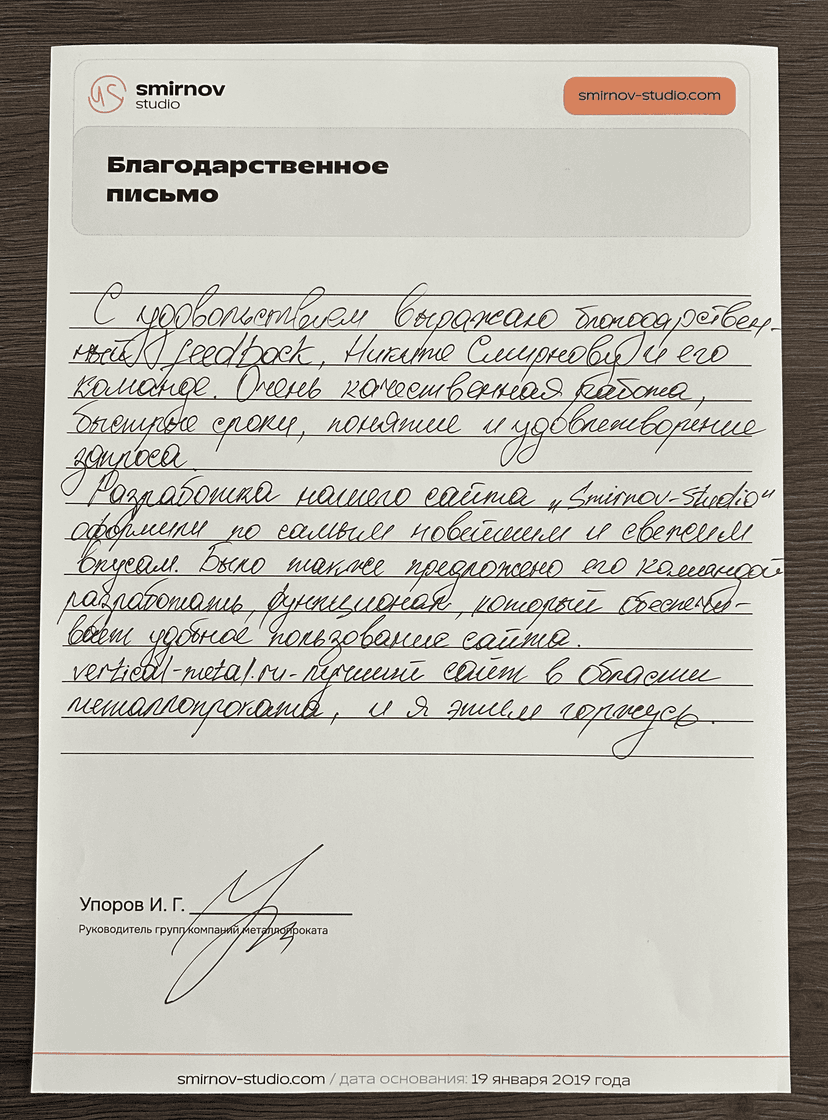 smirnov
studio
smirnov-studio.com
Благодарственное
письмо
С удовольствием выражаю благодарствен-
ный feedback, Никите Смирнову и его
команде. Очень качественная работа,
быстрые сроки, понятие и удовлетворение
запроса.
Разработка нашего сайта „Smirnov-Studio"
оформили по самым новейшим и свежим
вкусам. Было также предложено его командой
разработать, функционал, который обеспечи-
вает удобное пользование сайта.
vertical-metal.ru - лучший сайт в области
металлопроката, и я этим горжусь.
Упоров И. Г.
Руководитель групп компаний металлопроката
smirnov-studio.com / дата основания: 19 января 2019 года